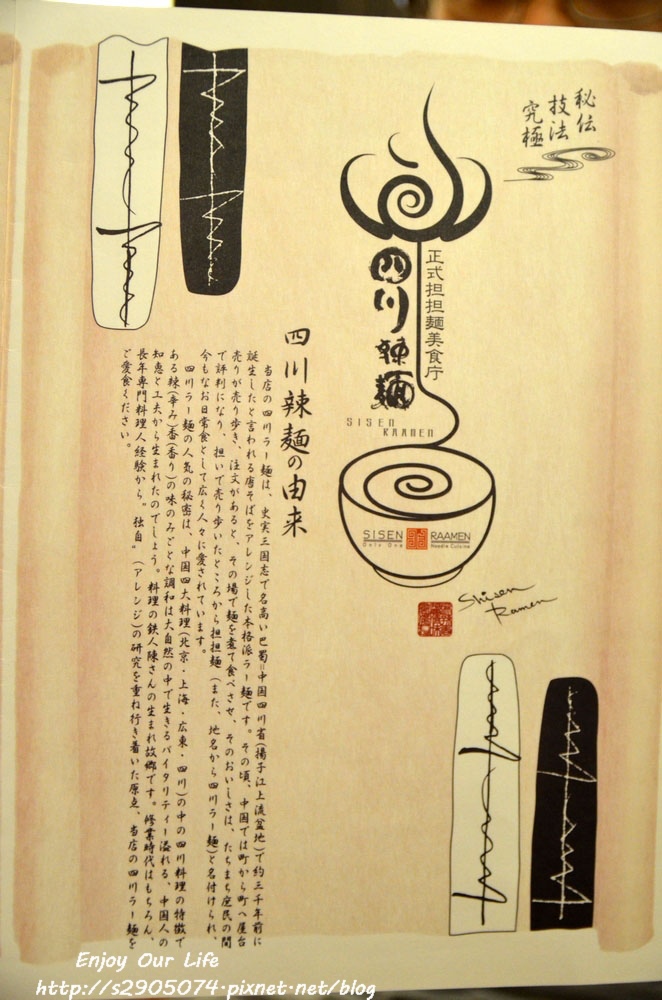 秘伝
技法
究極
正式担担麺美食庁
四川辣麺
SISEN
RAAMEN
SISEN
Only One
RAAMEN
Noodle Cuisine
Shisen
Ramen
四川辣麺の由来
当店の四川ラー麺は、史実三国志で名高い巴蜀=中国四川省(揚子江上流盆地)で約三千年前に
誕生したと言われる唐そばをアレンジした本格派ラー麺です。その頃、中国では町から町へ屋台
売りが売り歩き、注文があると、その場で麺を煮て食べさせ、そのおいしさは、たちまち庶民の間
で評判になり、担いで売り歩いたところから担担麺(また、地名から四川ラー麺)と名付けられ、
今もなお日常食として広く人々に愛されています。
四川ラー麺の人気の秘密は、中国四大料理(北京・上海・広東・四川)の中の四川料理の特徴で
ある辣(辛み)香(香り)の味のみごとな調和は大自然の中で生きるバイタリティー溢れる、中国人の
知恵と工夫から生まれたのでしょう。料理の鉄人陳さんの生まれ故郷です。修業時代はもちろん、
長年専門料理人経験から。独自"(アレンジ)の研究を重ね行き着いた原点、当店の四川ラー麺を
ご愛食ください。
Enjoy Our Life
http://s2905074.pixnet.net/blog